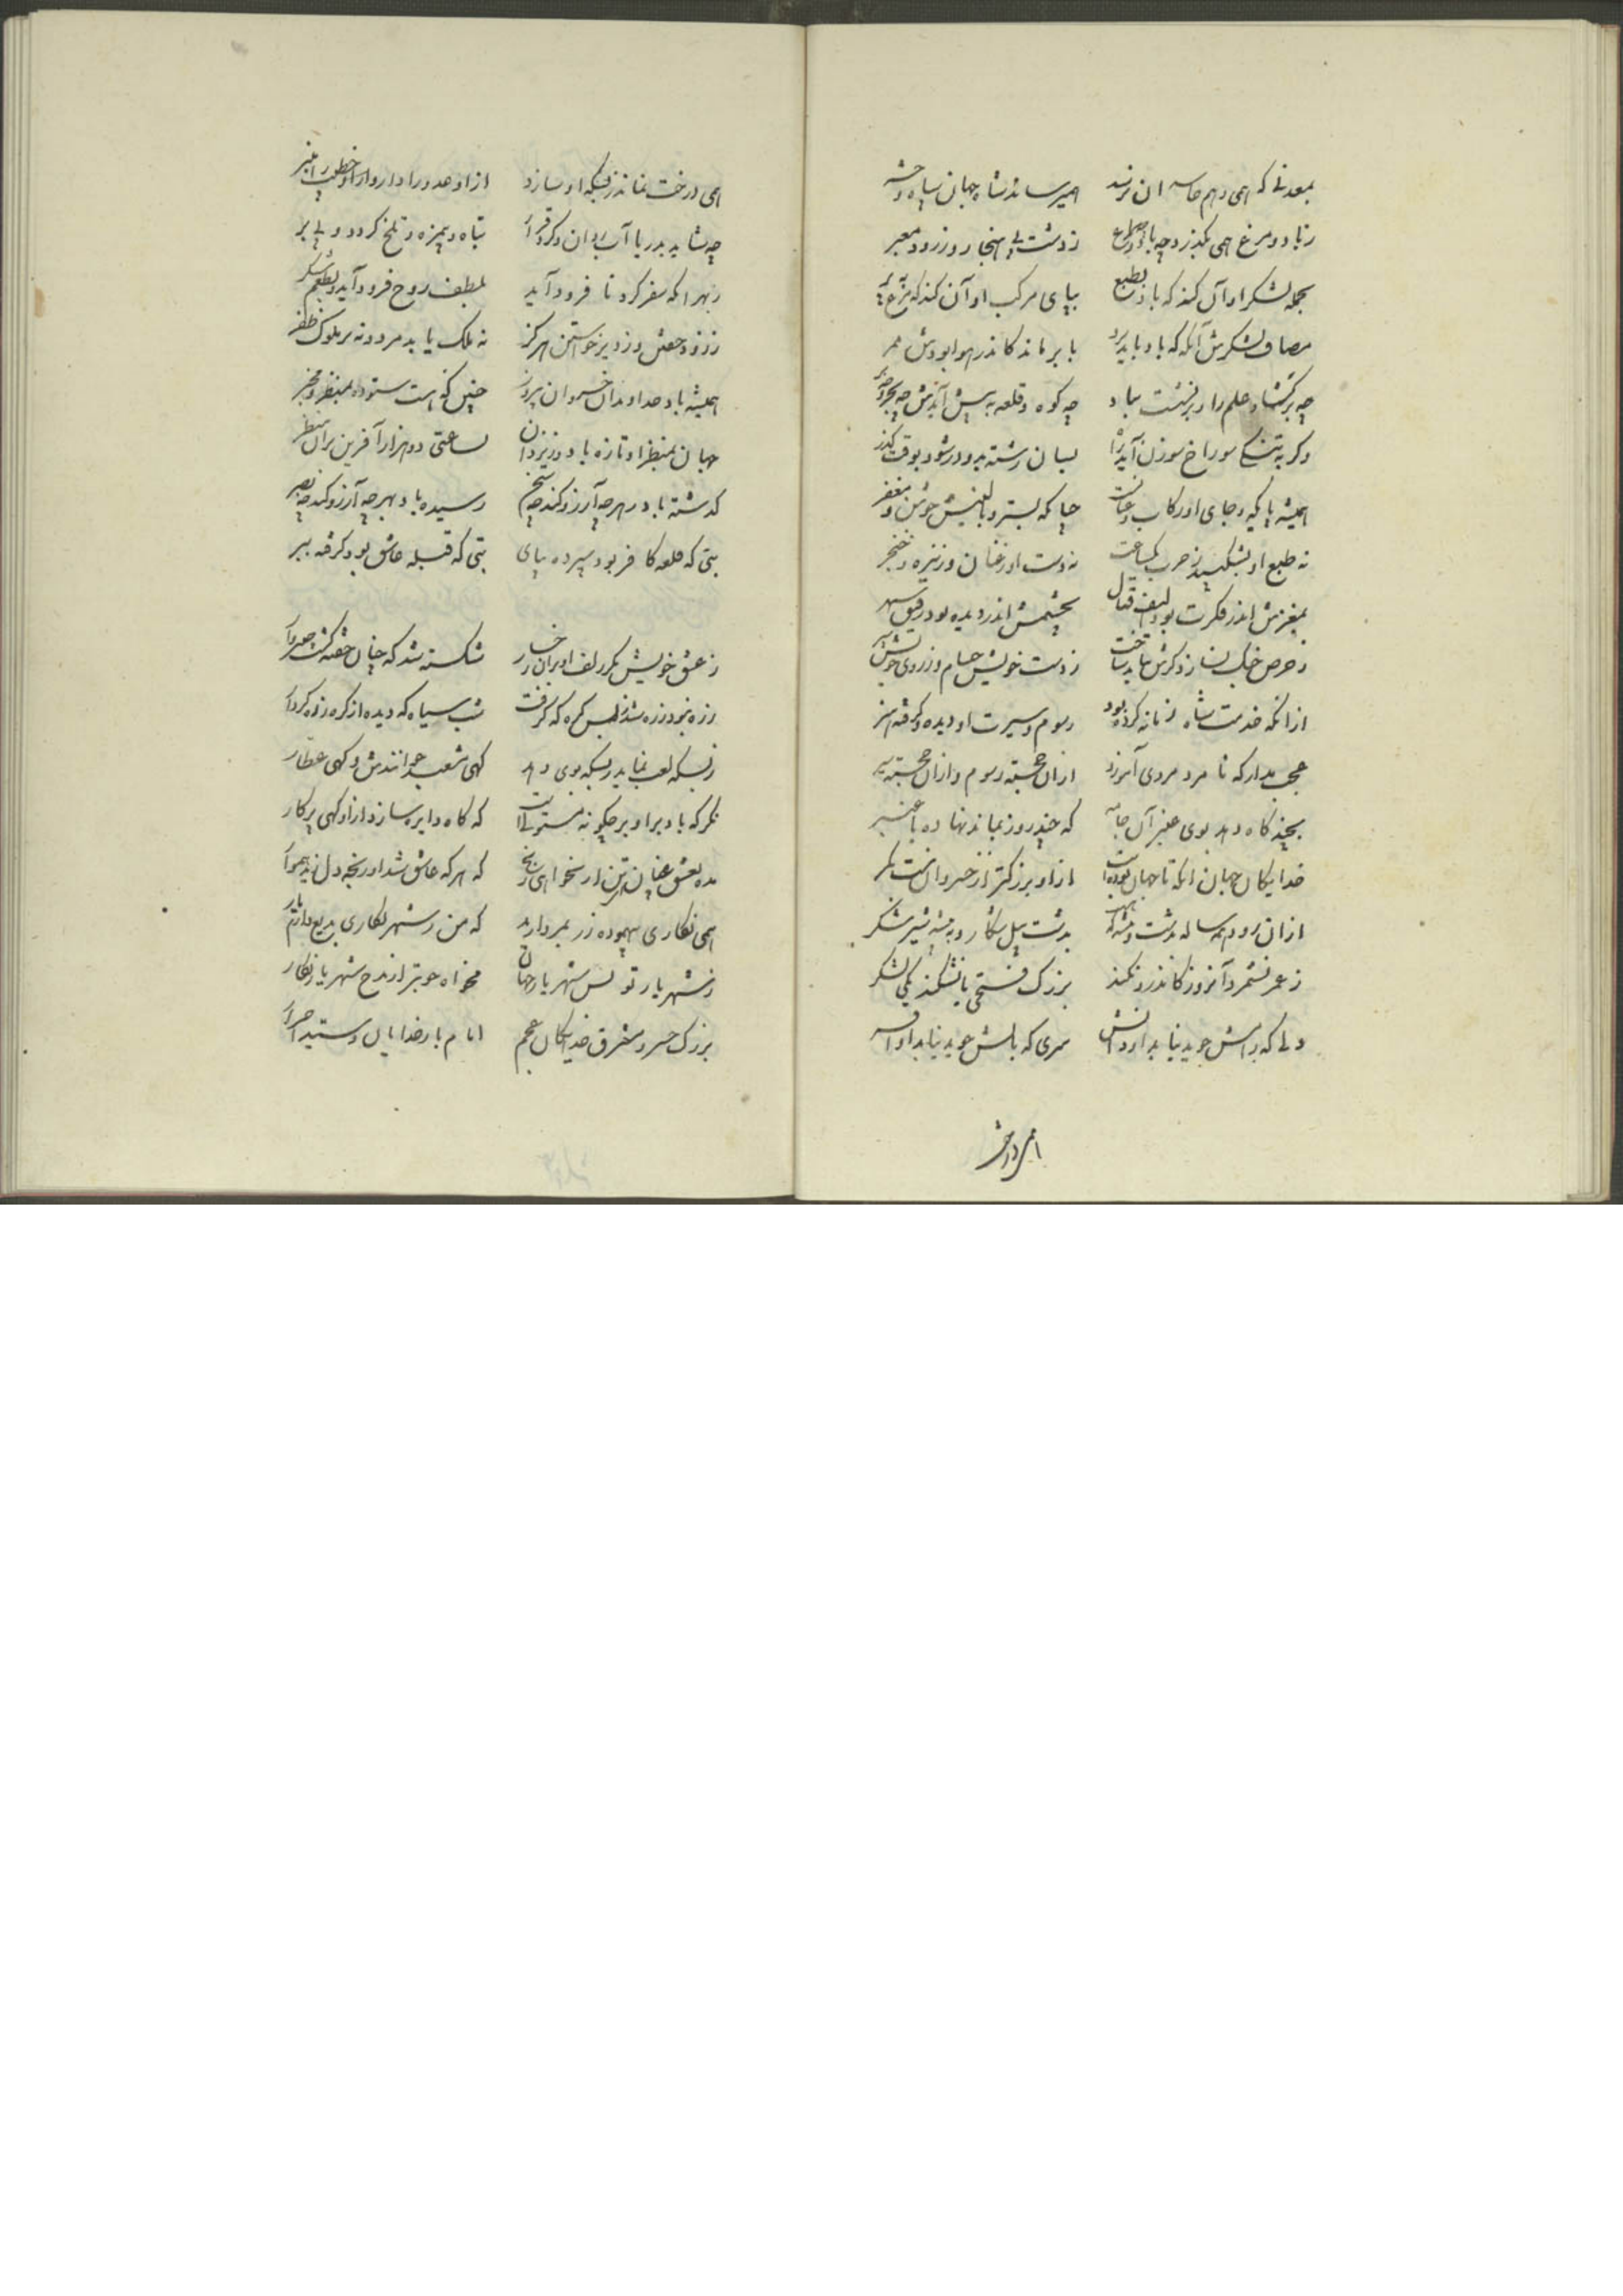 بمعدنی که همی وهم خاسه ان نرسد همیرساند شاه جهان سپاه و حشر
زباد و مرغ همی بگذرد چه باد و چه مرغ زدشت بی هنجار و ز رود بی معبر
بجمله لشکر او آن کند که باد بطبع بپای مرکب او آن کند که مرغ بپر
مصاف لشکرش آنگه که باد باید برد با بر ماند کاندر هوا بود ممر
چه برگشاد علم را و برنشست بباد چه کوه و قلعه به پیش آیدش چه بحر و چه بر
وگر به تنگی سوراخ سوزن آید راه بسان رشته برو در شود بوقت گذر
همیشه پا که و جای او رکاب و عنان چنانکه بستر و بالینش جوشن و مغفر
نه طبع او بشکیبد ز حرب یکساعت نه دست او ز عنان و ز نیزه و خنجر
بمغزش اندر فکرت بود لیف قتال بچشمش اندر دیده بود رفیق سهر
ز حرص جنگ نسازد گرش بباید ساخت ز دست خویش حسام و ز روی خویش سپر
ازانکه خدمت شاه زمانه کرده بود رسوم و سیرت او دیده و گرفته هنر
عجب مدار که نا مرد مردی آموزد ازان خجسته رسوم و ازان خجسته سیر
بچند گاه دهد بوی عنبر آن جامه که چند روز بماند نهاده با عنبر
خدایگان جهان آنکه تا جهان بوده است ازاو بزرگتر از خسروان نبست کمر
ازان رود همه ساله بدشت و بیشه که بدشت پیل شکار و به بیشه شیر شکر
ز عمر نشمرد آنروز کاندرو نکند بزرگ فتحی یا نشکند یکی لشکر
دلی که رامش جوید نیابد او دانش سری که بالش جوید نیابد او افسر
همی درخت نماند ز بسکه او سازد ازاو عدو را دار و ازاو خطیب را منبر
چه شاید بدریا آب روان و کرد قرار تباه و بیمزه و تلخ گردد و بی بر
ز بهر آنکه سفر کرد تا فرود آید بلطف روح فرود آید و بطعم شکر
ز زود خفتن و ز دیر خواستن هرگز نه ملک یابد مرد و نه بر ملوک ظفر
همیشه باد خداوندان خسروان پیروز چنین که هست ستوده بمنظر و مخبر
جهان بمنظر او تازه باد و ز یزدان بساعتی دو هزار آفرین بران منظر
گذشته باد ز هر چه آرزو کند چه سنجم رسیده باد بهر چه آرزو کند چه ببصر
بتی که قلعه کافر بود سپرده بپای بتی که قبله عاشق بود گرفته ببر
ز عشق خویش مگر زلف او بران رخسار شکسته شد که چنان خفته گشت چنبروار
زره نبود زره شد ز بس گره که گرفت شب سیاه که دیده از گره زره کردار
ز بسکه لعب نماید ز بسکه بوی دهد گهی مشعبد خوانندش و گهی عطار
نگر که باد براو بر چگونه مستولی است که گاه دایره سازد ازاو گهی پرگار
مده بعشق عنان تن ار نخواهی رنج که هر که عاشق شد او رنجه دل زید هموار
همی نگاری بیهوده زر بمر دارد که من ز شهر نگاری بدیع دارم یار
ز شهریار تو بس شهریار جهان مخواه خوبتر از مدح شهریار نگار
بزرگ خسرو مشرق خدایگان عجم امام بار خدایان و سید احرار